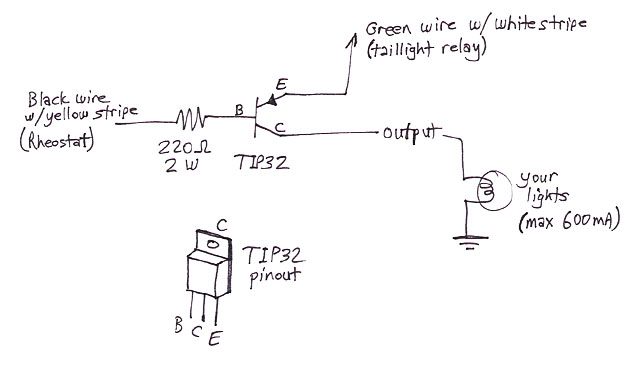 Green wire w/ white stripe
(taillight relay)
E
Black wire
w/yellow stripe
(Rheostat)
B
C
output
220Ω
2 W
TIP32
your
lights
(max 600mA)
C
TIP32
pinout
B C E